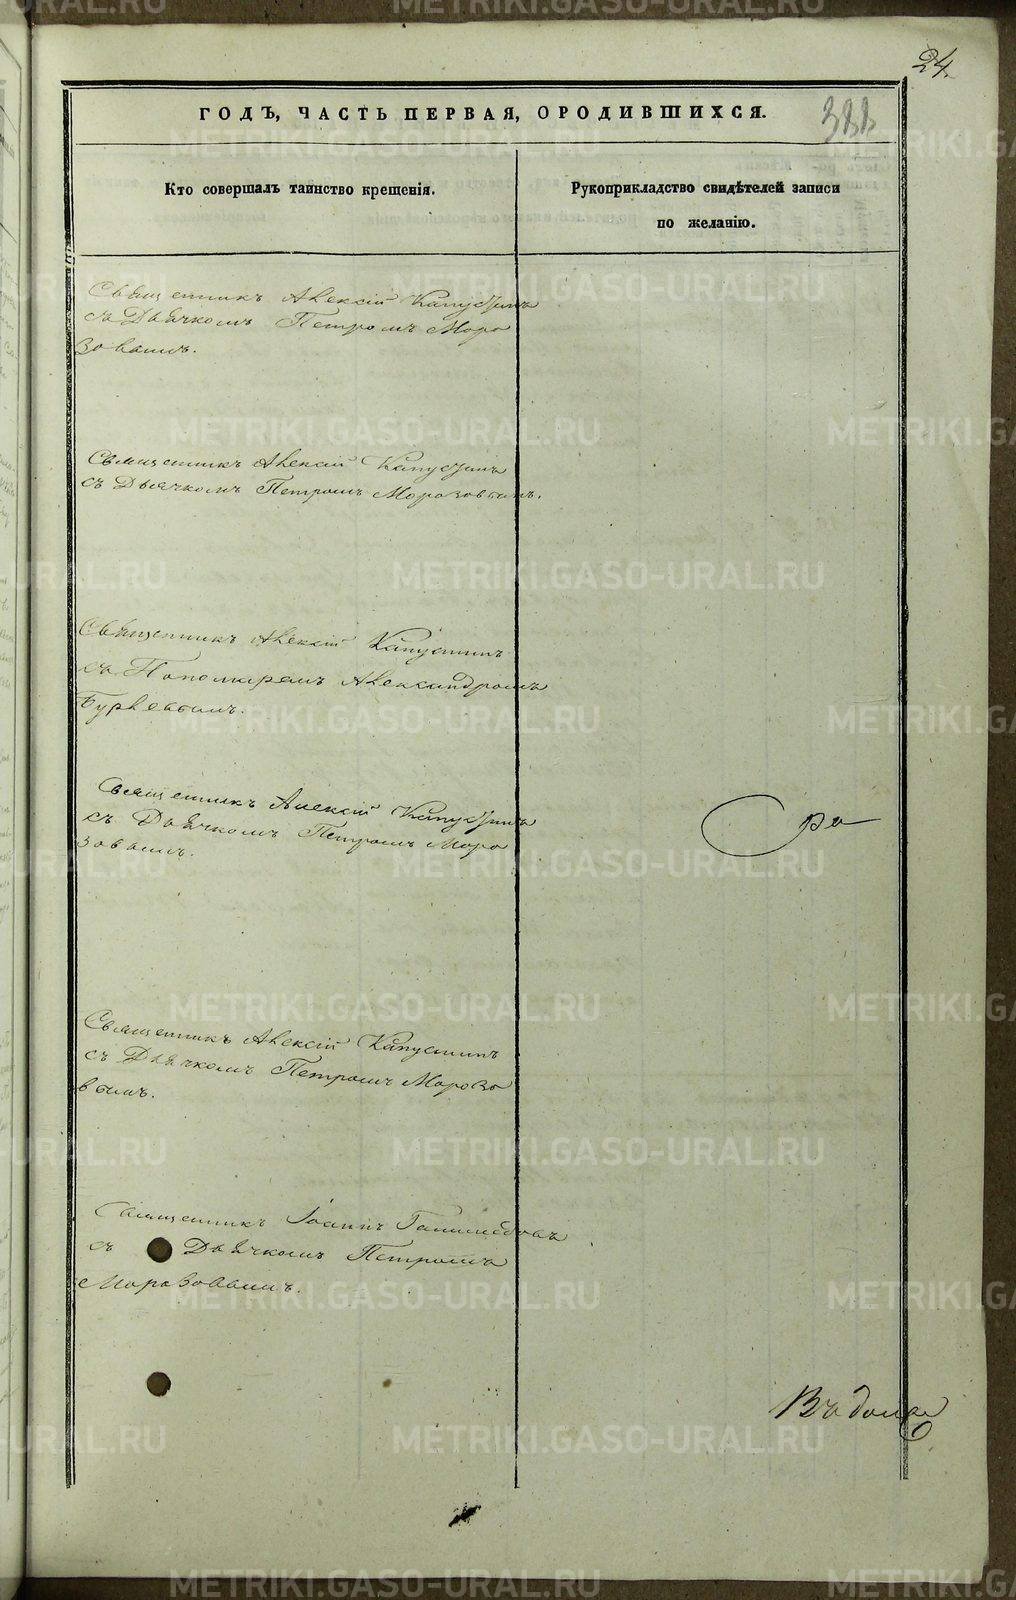 24.
ГОДЪ, ЧАСТЬ ПЕРВАЯ, ОРОДИВШИХСЯ.
Кто совершалъ таинство крещенія.
Рукоприкладство свидѣтелей записи
по желанію.
Священникъ Алексій Капустинъ
съ Дьячкомъ Петромъ Моро
зовымъ.
Священникъ Алексій Капустинъ
съ Дьячкомъ Петромъ Морозовымъ.
Священникъ Алексій Капустинъ
съ Пономаремъ Александромъ
Священникъ Алексій Капустинъ
съ Дьячкомъ Петромъ Моро
зовымъ.
Священникъ Алексій Капустинъ
съ Дьячкомъ Петромъ Морозо
вымъ.
Священникъ Іоаннъ
съ Дьячкомъ Петромъ
Морозовымъ.
METRIKI.GASO-URAL.RU